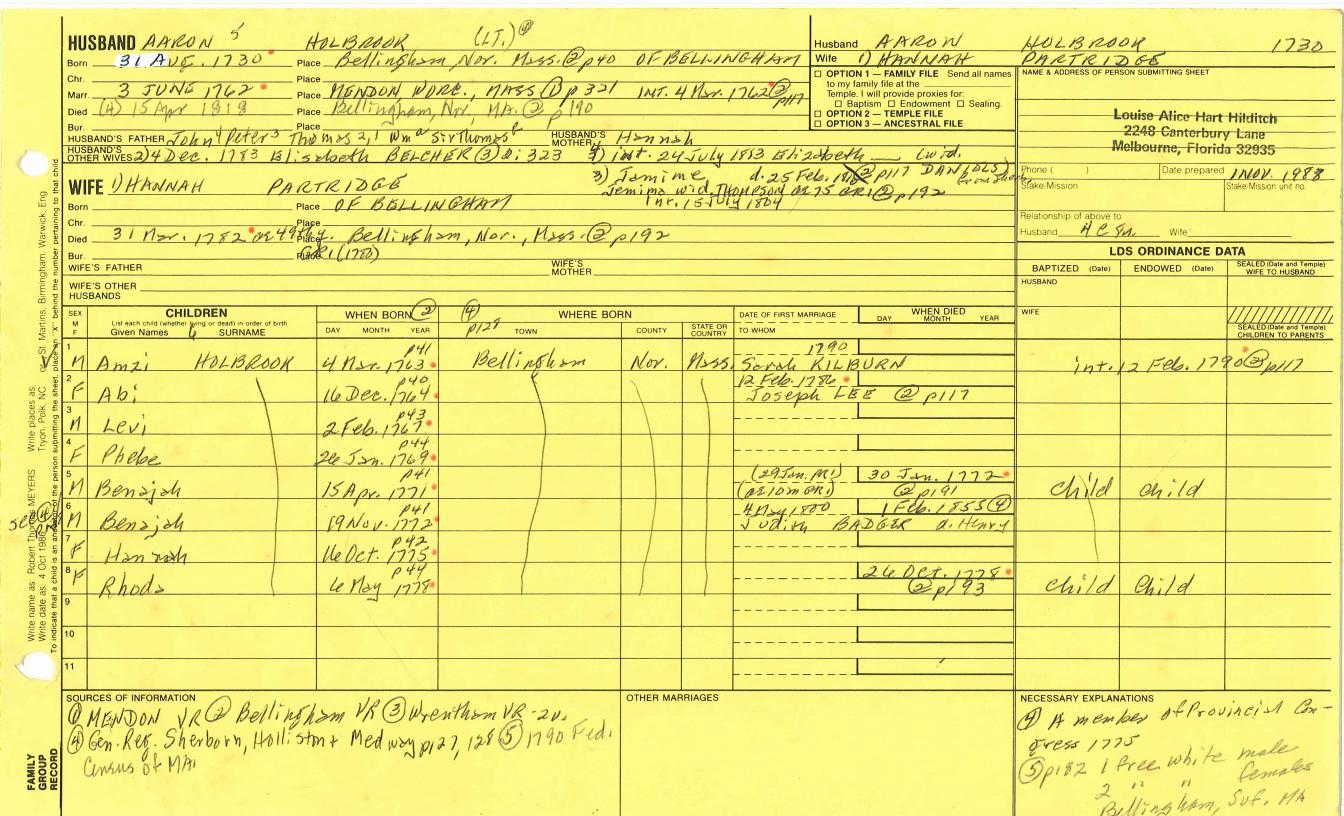 HUSBAND AARON 5 HOLBROOK (LT.) ④
Born 31 AUG. 1730 Place Bellingham, Nor. Mass. ② p40 OF BELLINGHAM
Chr. Place
Marr. 3 JUNE 1762 Place MENDON WORC., MASS ① p 321 INT. 4 Mar. 1762 ② p117
Died (4) 15 Apr 1818 Place Bellingham, Nor, MA. ② p190
Bur. Place
HUSBAND'S FATHER John 4 Peter 3 Thomas 2, 1 Wm a Sir Thomas HUSBAND'S MOTHER Hannah
HUSBAND'S OTHER WIVES 2) 4 Dec. 1783 Elisabeth BELCHER ③ 2: 323 4) int. 24 July 1813 Elizabeth (wid.
3) Jamime d. 25 Feb. ② p117 DANIELS
Jemima wid. THOMPSON ae 75 GR1 ② p192
Int. 15 July 1804
WIFE 1) HANNAH PARTRIDGE
Born Place OF BELLINGHAM
Chr. Place
Died 31 Mar. 1782 ae 49th y. Place Bellingham, Nor., Mass. ② p192
Bur. Place GR1 (1780)
WIFE'S FATHER WIFE'S MOTHER
WIFE'S OTHER HUSBANDS
Husband AARON HOLBROOK 1730
Wife 1) HANNAH PARTRIDGE
☐ OPTION 1 — FAMILY FILE Send all names
to my family file at the
Temple. I will provide proxies for:
☐ Baptism ☐ Endowment ☐ Sealing.
☐ OPTION 2 — TEMPLE FILE
☐ OPTION 3 — ANCESTRAL FILE
NAME & ADDRESS OF PERSON SUBMITTING SHEET
Louise Alice Hart Hilditch
2248 Canterbury Lane
Melbourne, Florida 32935
Phone ( ) Date prepared 1 NOV. 1988
Stake/Mission Stake/Mission unit no.
Relationship of above to
Husband Wife
LDS ORDINANCE DATA
BAPTIZED (Date) ENDOWED (Date) SEALED (Date and Temple) WIFE TO HUSBAND
HUSBAND
WIFE
SEALED (Date and Temple) CHILDREN TO PARENTS
SEX M F CHILDREN WHEN BORN ② ④ p128 WHERE BORN DATE OF FIRST MARRIAGE WHEN DIED
List each child (whether living or dead) in order of birth
Given Names 6 SURNAME DAY MONTH YEAR TOWN COUNTY STATE OR COUNTRY TO WHOM DAY MONTH YEAR
1 p41 1790
M Amzi HOLBROOK 4 Mar. 1763 Bellingham Nor. Mass. Sarah KILBURN int. 12 Feb. 1790 ② p117
2 p40 12 Feb. 1786
F Abi 16 Dec. 1764 Joseph LEE ② p117
3 p43
M Levi 2 Feb. 1767
4 p44
F Phebe 26 Jan. 1769
5 p41 (29 Jan. GR1) 30 Jan. 1772
M Benajah 15 Apr. 1771 (ae 10m GR1) ② p191 child child
6 p41 4 May 1800 1 Feb. 1855 ④
M Benajah 19 Nov. 1772 Judith BADGER d. Henry
7 p42
F Hannah 16 Oct. 1775
8 p44 26 Oct. 1778
F Rhoda 6 May 1778 ② p193 child Child
9
10
11
SOURCES OF INFORMATION
① MENDON VR ② Bellingham VR ③ Wrentham VR - 2v.
④ Gen. Reg. Sherborn, Holliston & Medway p127, 128 ⑤ 1790 Fed.
Census of MA
OTHER MARRIAGES
NECESSARY EXPLANATIONS
④ A member of Provincial Con-
gress 1775
⑤ p182 1 free white male
2 " " females
Bellingham, Suf. MA
FAMILY GROUP RECORD
Write name as Robert Thomas MEYERS Write places as Tryon, Polk, NC or St. Martins, Birmingham, Warwick, Eng
Write date as 4 Oct 1986